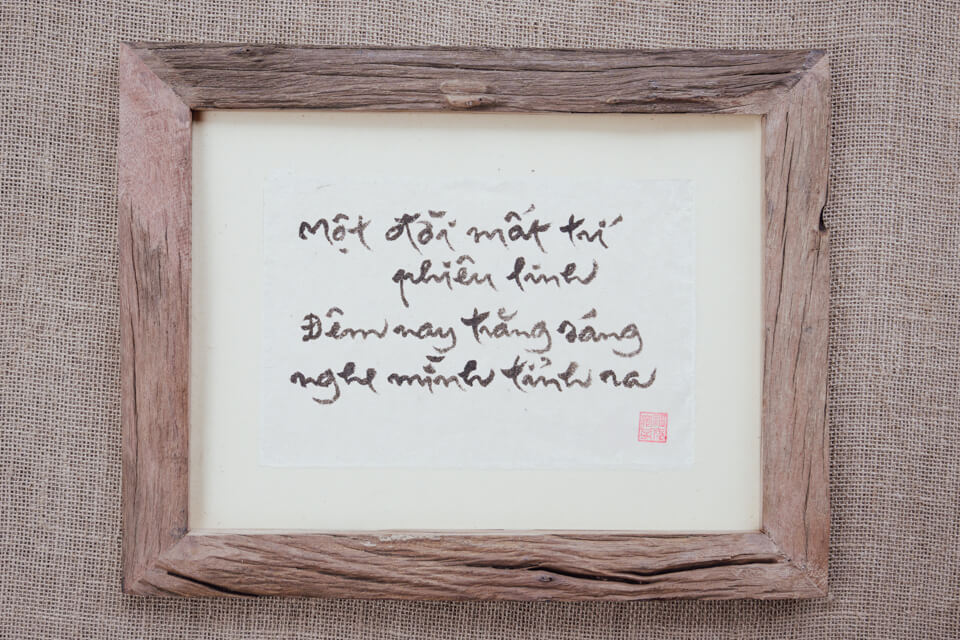 Một đời mất trí
phiêu linh
Đêm nay trăng sáng
nghe mình tỉnh ra